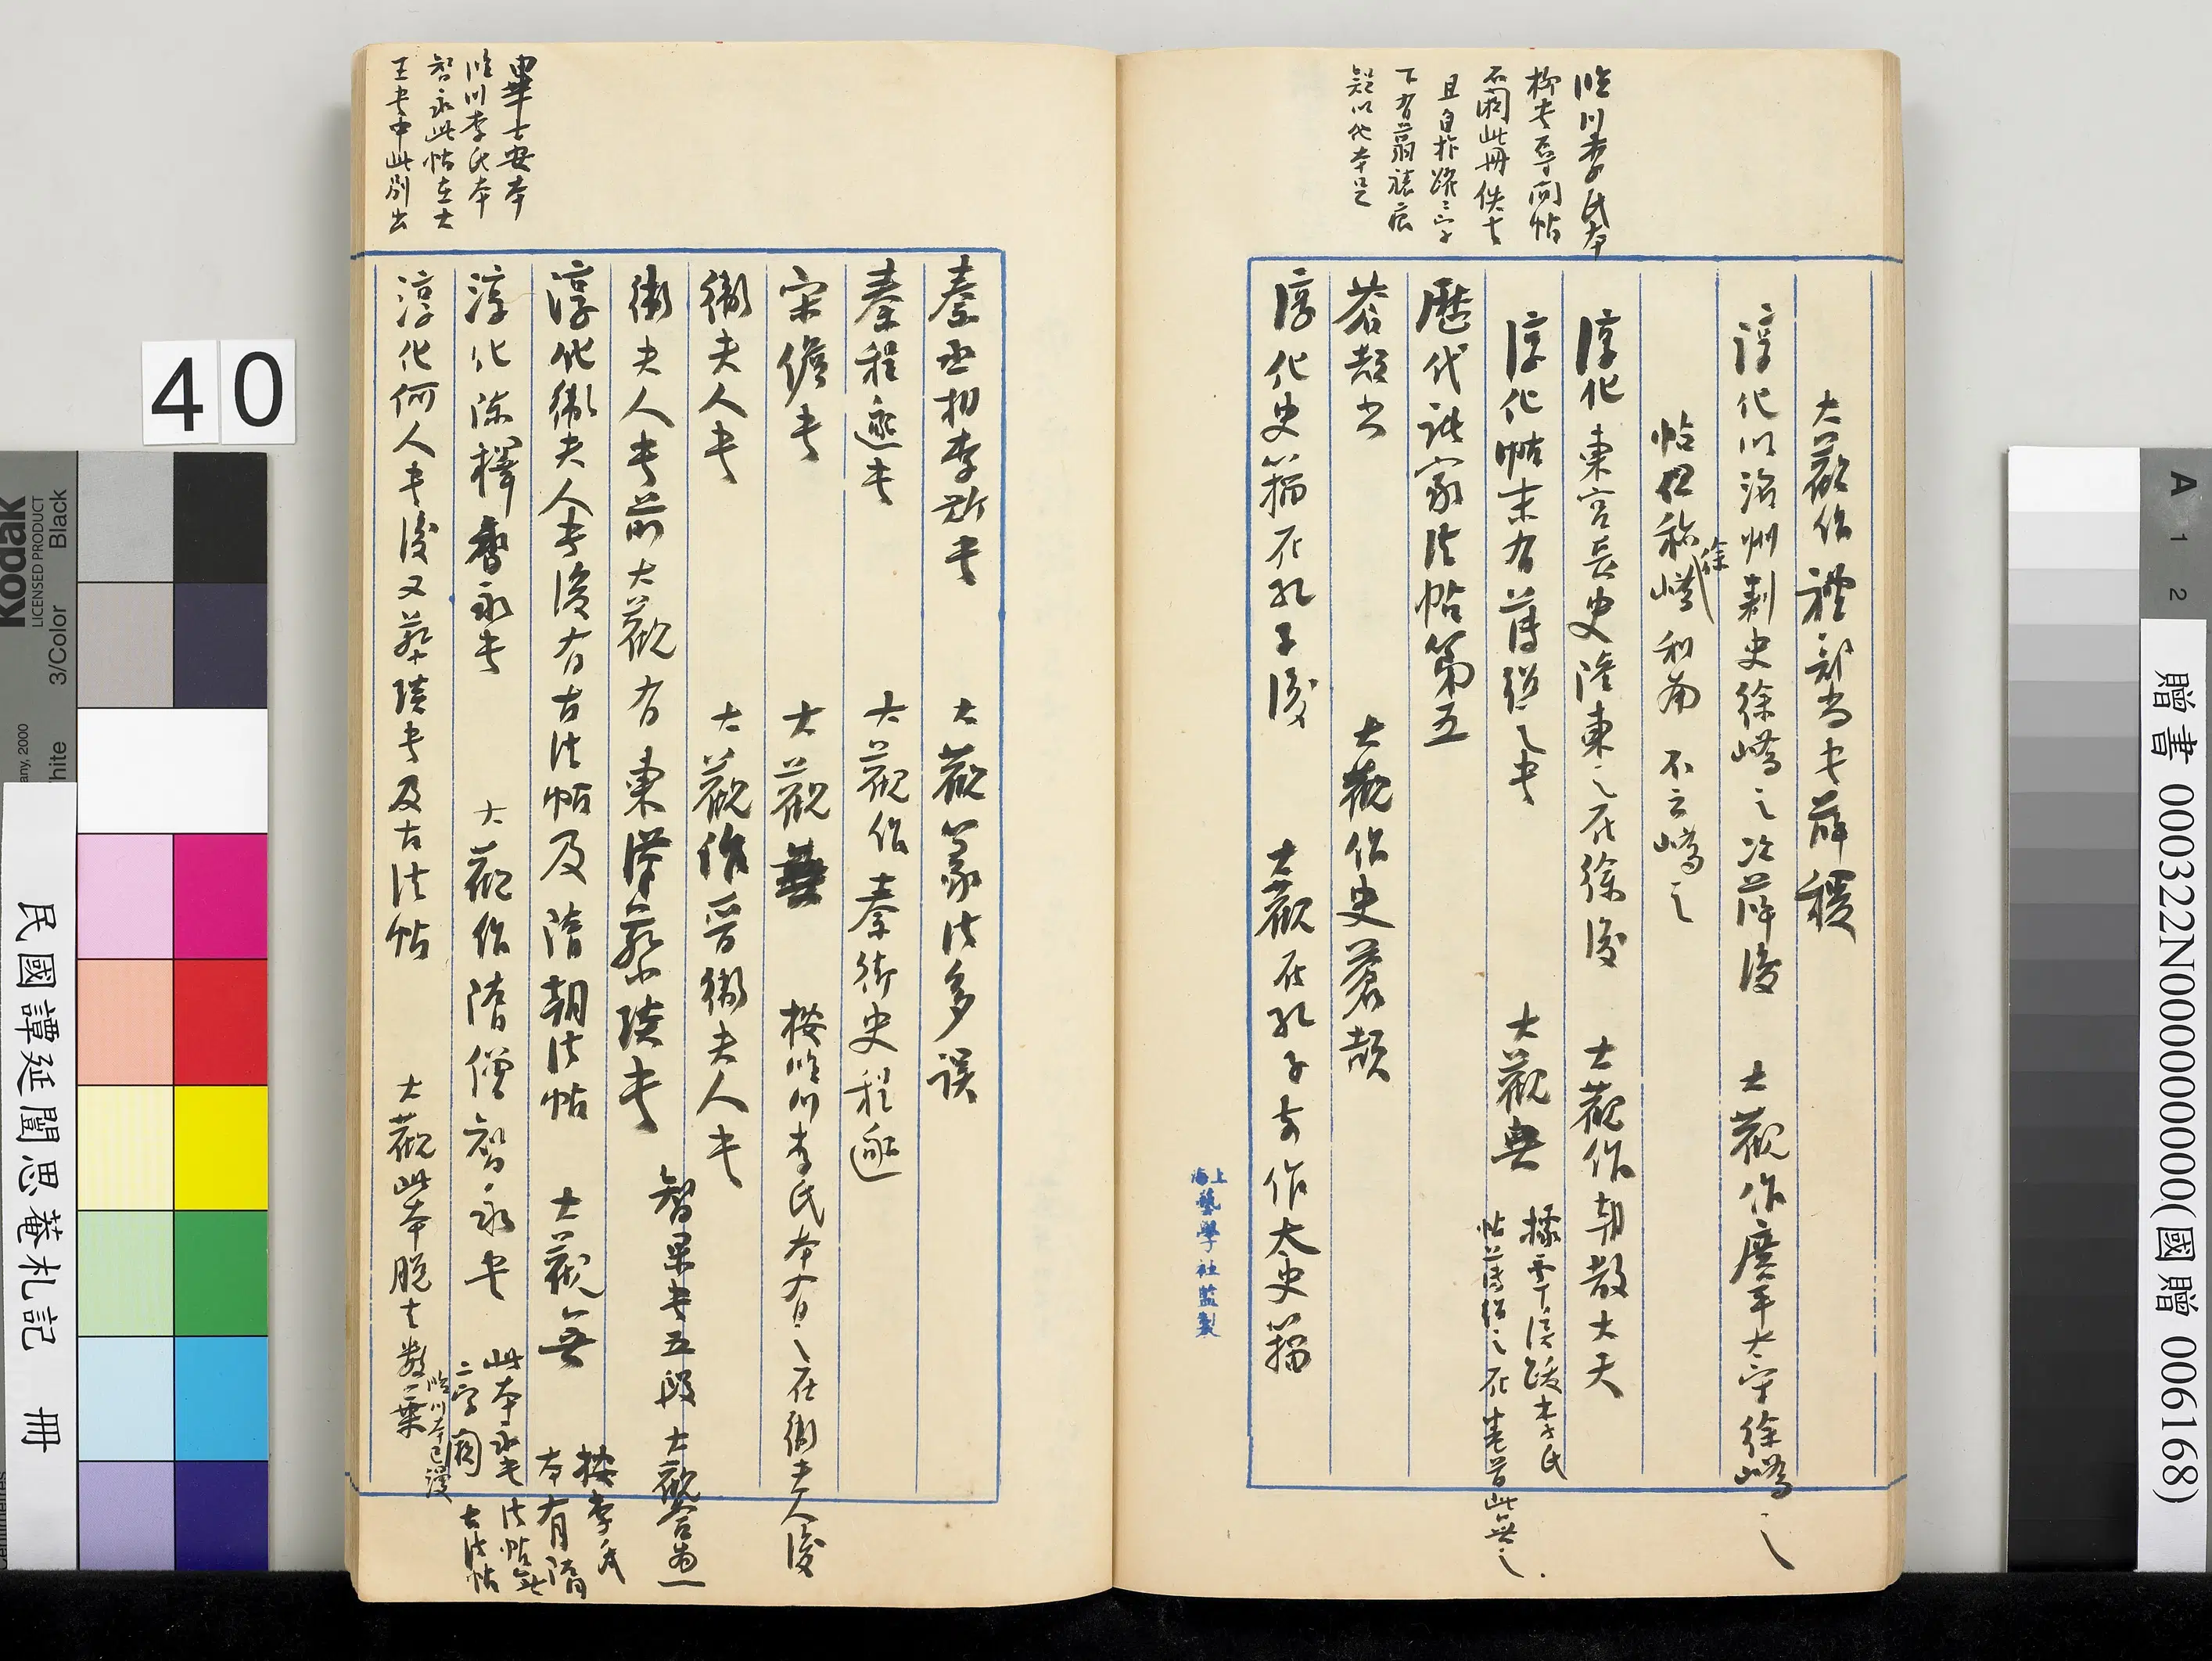 臨川李氏本
柳書
石闕此冊佚去
且自作跋三字
下有翦裱痕
疑以他本足
大觀作禮部尚書薛稷
淳化以洺州刺史徐嶠之次薛後　大觀作廣平太守徐嶠之
帖但稱徐嶠和南　不云嶠之
淳化東宮長史陸柬之在徐後　大觀作朝散大夫
淳化帖末有薄紹之書　大觀無
李氏
帖薄紹之在卷首此無之
歷代諸家法帖第五
蒼頡書　大觀作史蒼頡
淳化史籀在孔子後　大觀在孔子前作太史籀
上海藝學社監製
秦丞相李斯書　大觀篆法多誤
秦程邈書　大觀作秦御史程邈
宋儋書　大觀無　按臨川李氏本有之在衛夫人後
衛夫人書　大觀作晉衛夫人書
衛夫人書前大觀有東漢蔡琰書　智果書五段大觀合為一
淳化衛夫人書後有古法帖及隋朝法帖　大觀無
按李氏
本有隋
淳化陳釋智永書　大觀作隋僧智永書
此本永書法帖
二字闕　古法帖
淳化何人書後又蔡琰書及古法帖　大觀此本脫去數葉
臨川本已
畢士安本
臨川李氏本
智永此帖在大
王書中此別出
40
Kodak
LICENSED PRODUCT
3/Color
Black
White
A 1 2
民國譚延闓思菴札記　冊
贈書 000322N000000000(國贈 006168)